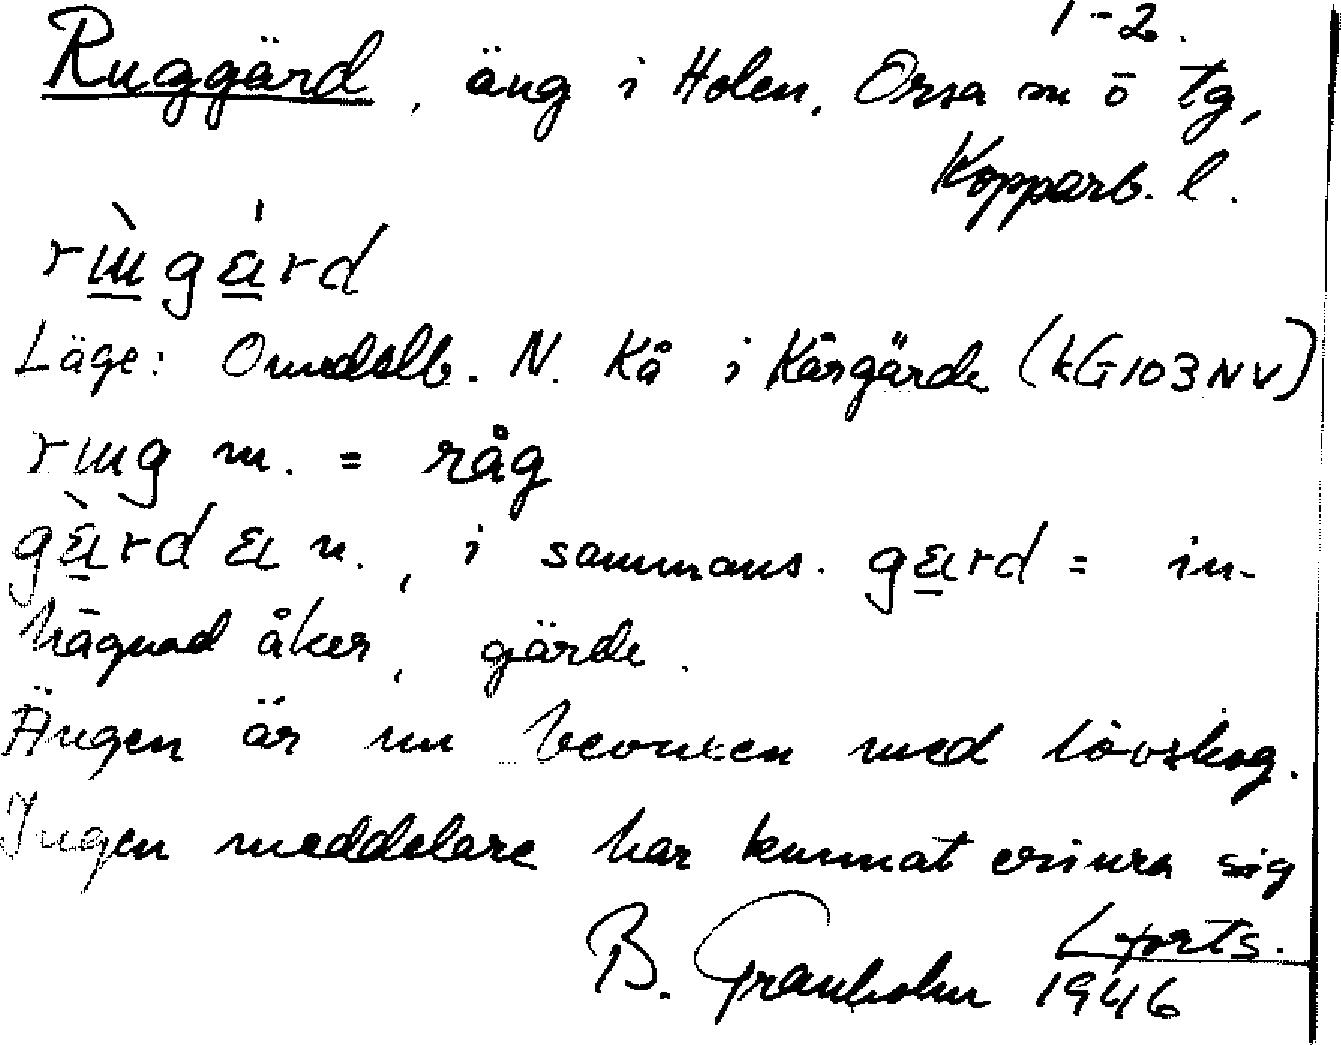 1-2.
Ruggärd, äng i Holen, Orsa sn ö tg,
Kopparb. l.
Läge: Omedelb. N. Kå i Kårgärde (kG103NV)
m. = råg
n., i sammans. = in-
hägnad åker, gärde.
Ängen är nu bevuxen med lövskog.
Ingen meddelare har kunnat erinra sig
Lforts.
B. Granholm 1946